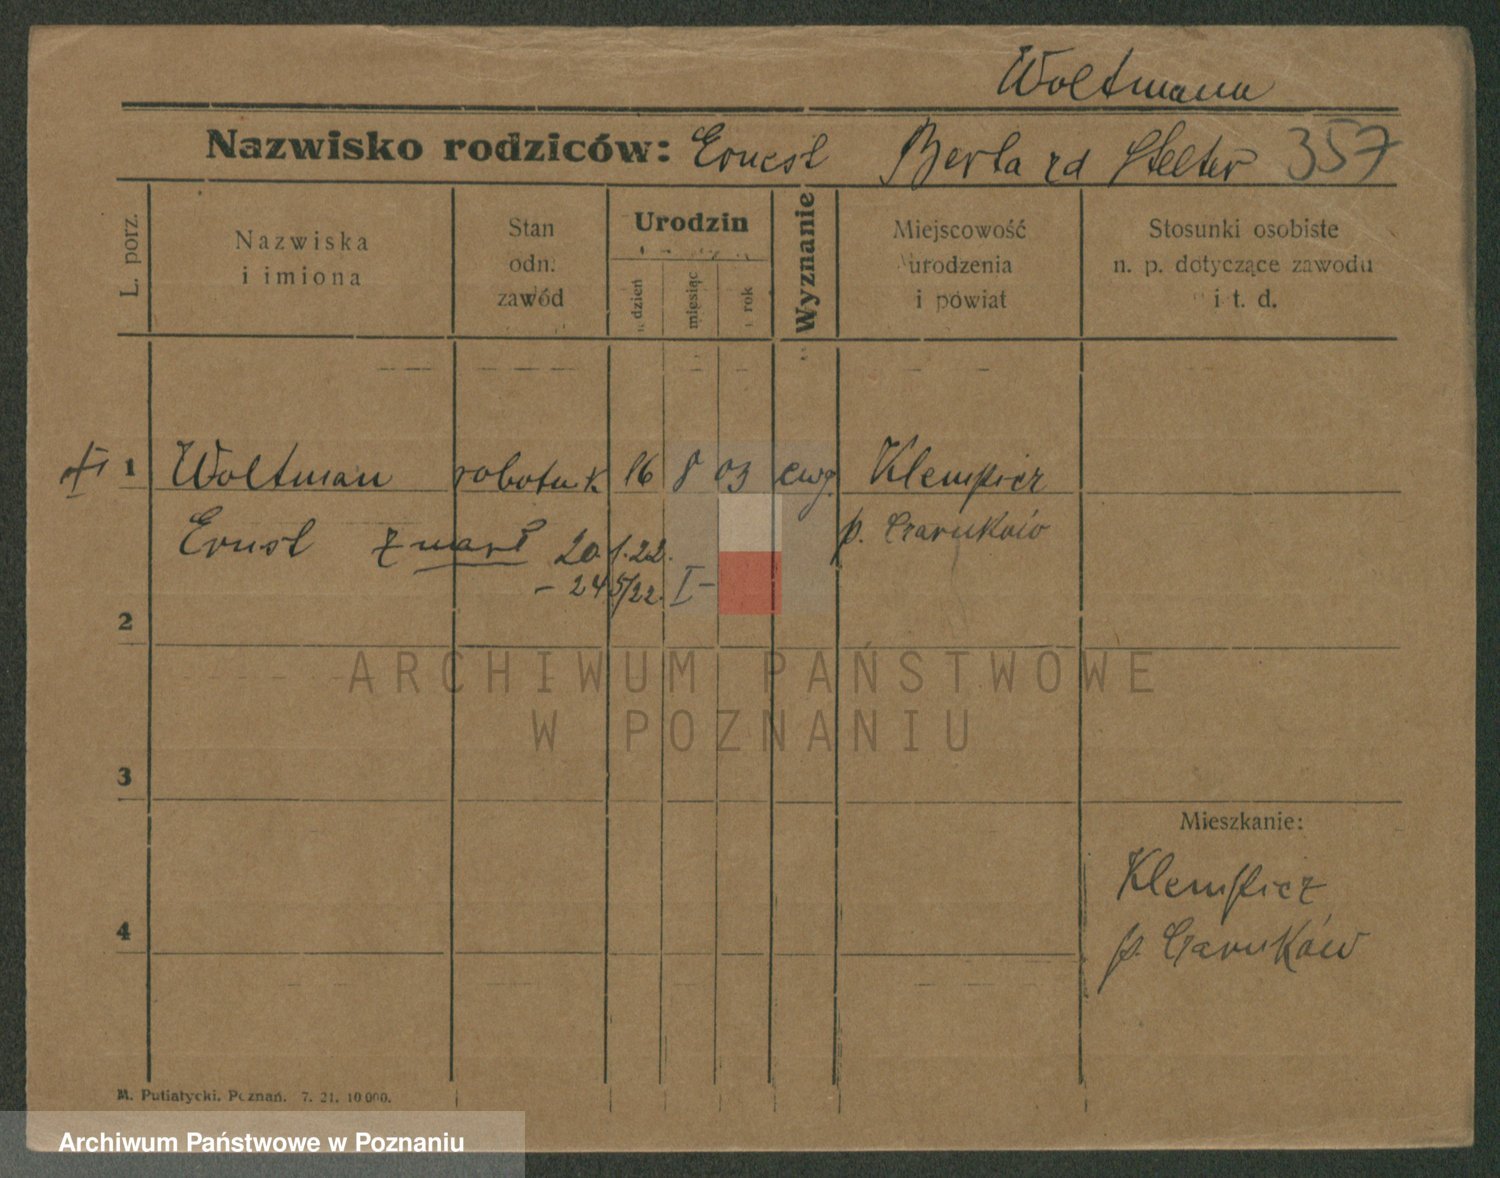 Woltmann
Nazwisko rodziców: Ernest Berta zd Stelter 357
L. porz.
Nazwiska
i imiona
Stan
odn.
zawód
Urodzin
dzień
miesiąc
rok
Wyznanie
Miejscowość
urodzenia
i powiat
Stosunki osobiste
n. p. dotyczące zawodu
i t. d.
1 Woltman robotnik 16 8 03 ewg Klempicz
Ernst zmarł 20.1.22. p. Czarnków
- 24 5/22. I -
2
3
Mieszkanie:
Klempicz
4
p. Czarnków
ARCHIWUM PAŃSTWOWE
W POZNANIU
M. Putiatycki, Poznań. 7. 21. 10 000.
Archiwum Państwowe w Poznaniu